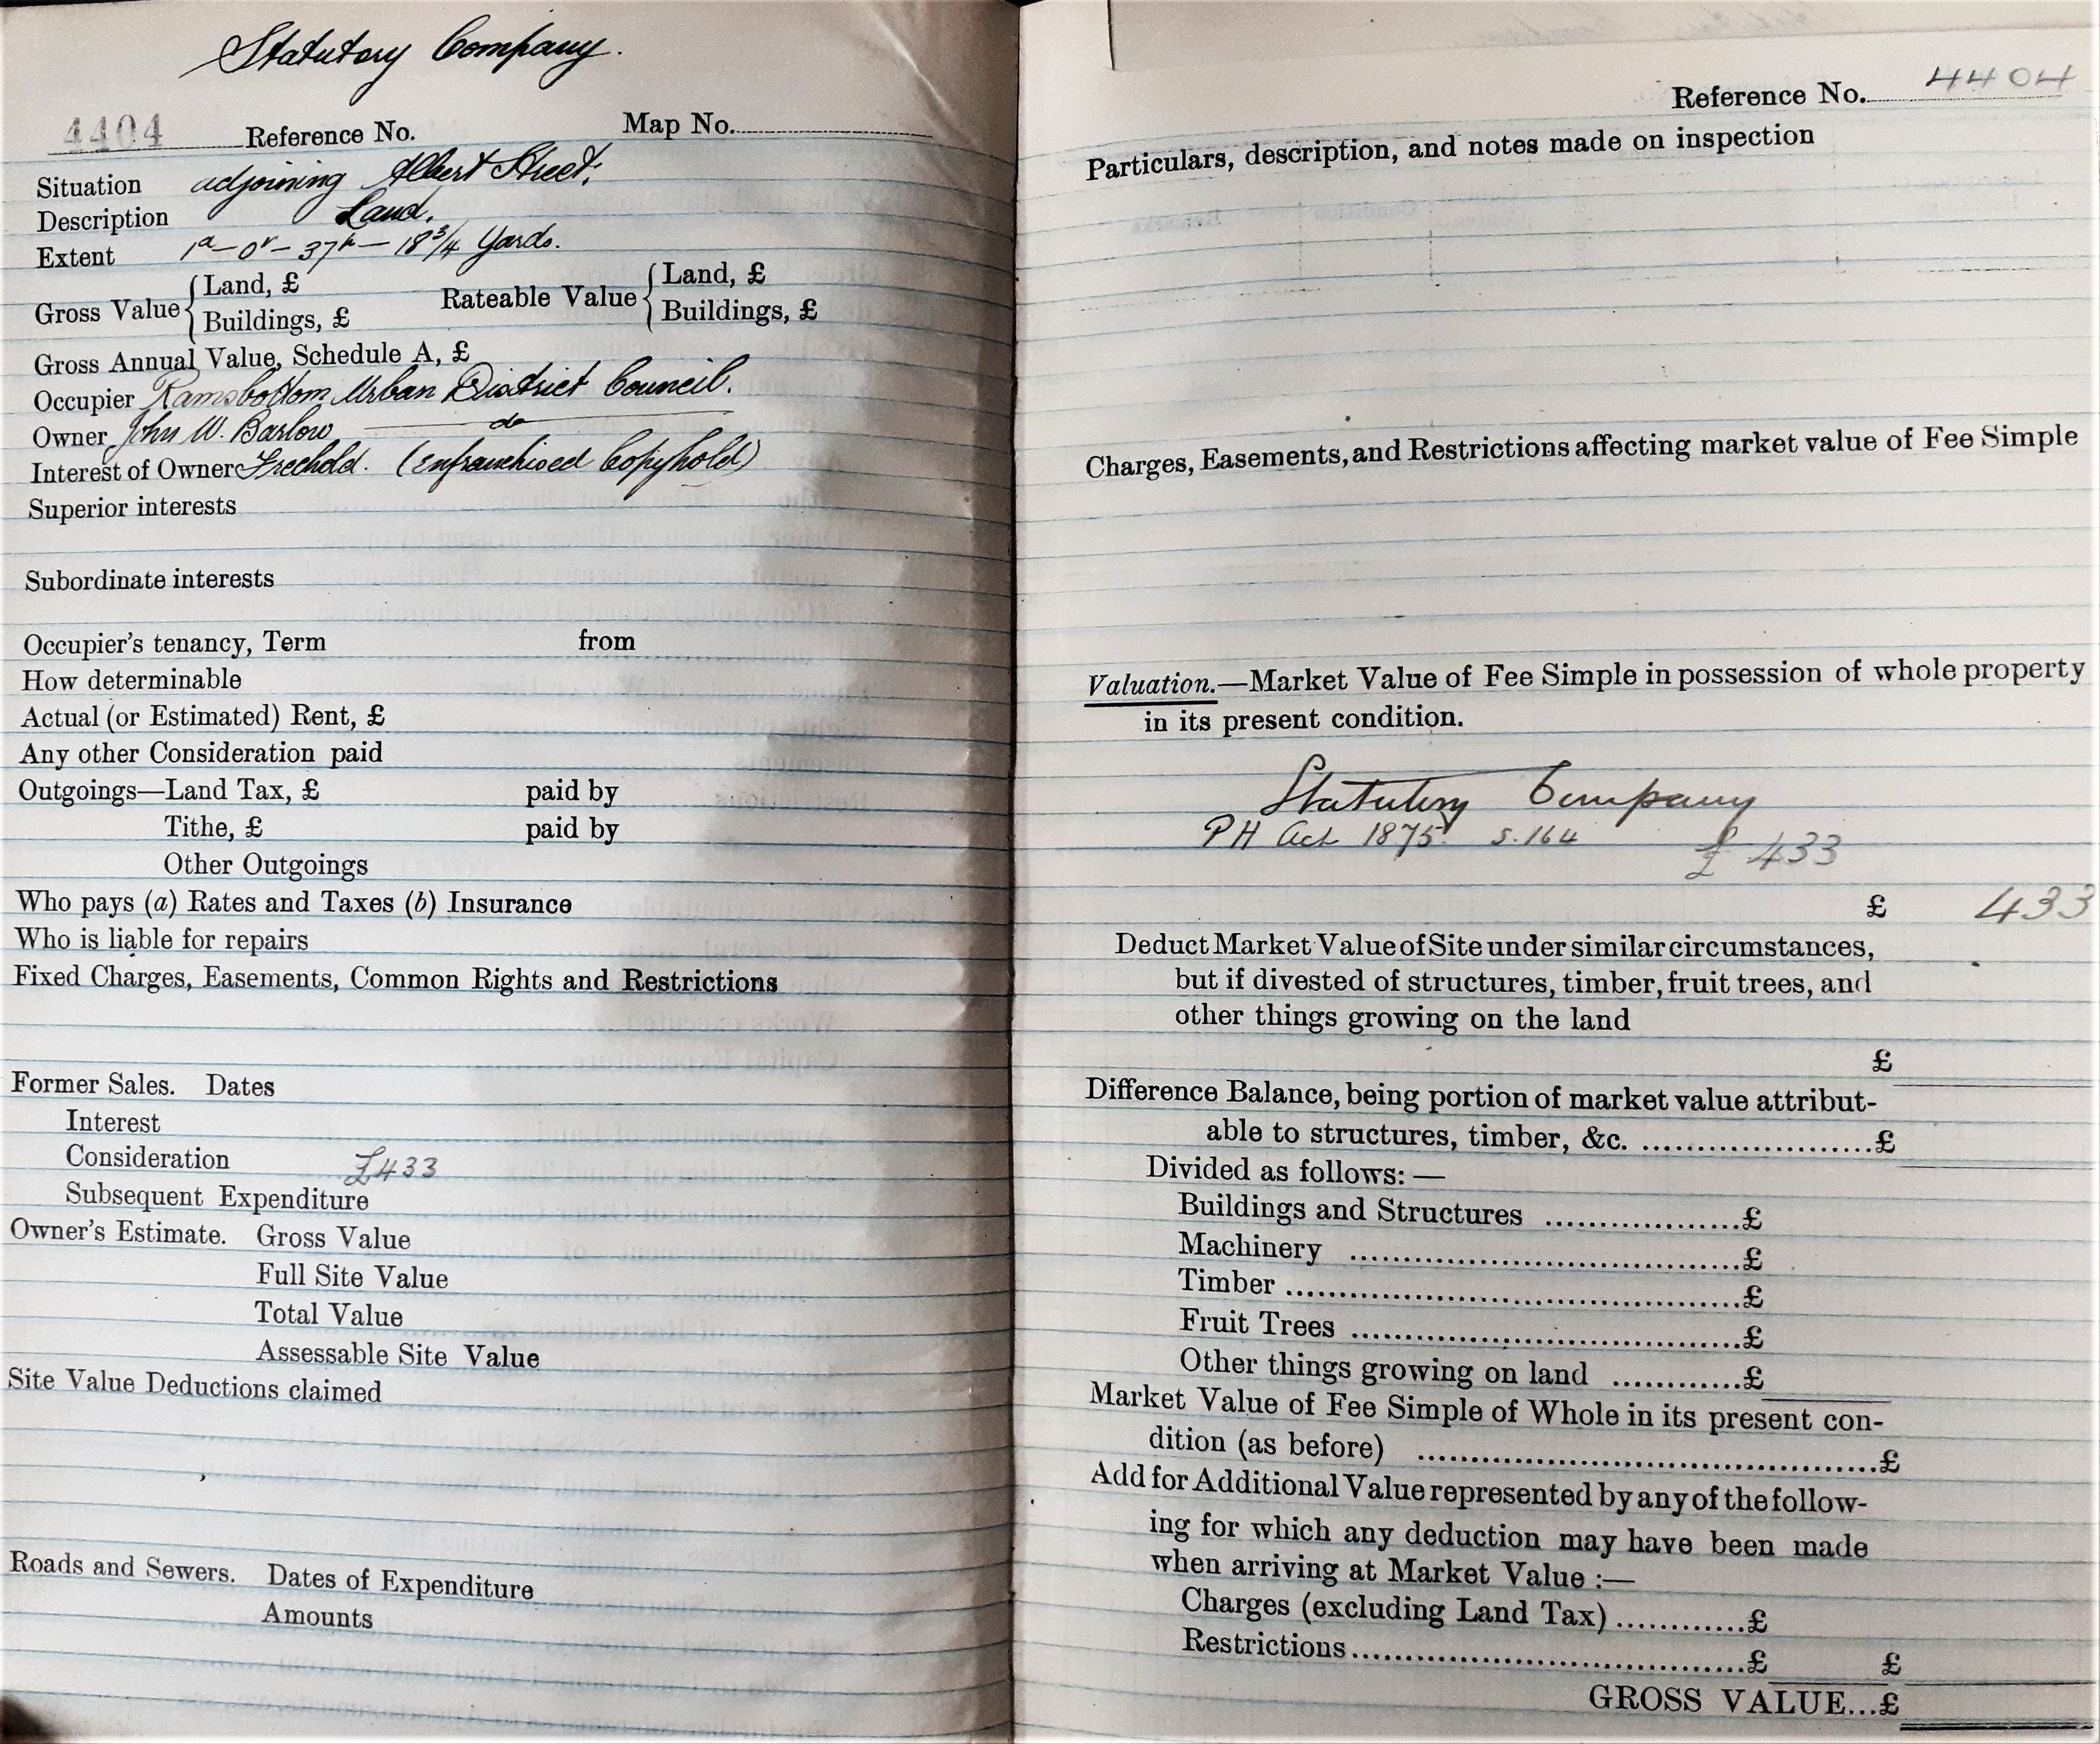 Statutory Company.
4404 Reference No. Map No.
Situation adjoining Albert Street.
Description Land.
Extent 1a – 0r – 37p – 18 3/4 Yards.
Gross Value { Land, £ Rateable Value { Land, £
Buildings, £ Buildings, £
Gross Annual Value, Schedule A, £
Occupier Ramsbottom Urban District Council.
Owner John W. Barlow — do —
Interest of Owner Freehold. (Enfranchised Copyhold)
Superior interests
Subordinate interests
Occupier's tenancy, Term from
How determinable
Actual (or Estimated) Rent, £
Any other Consideration paid
Outgoings—Land Tax, £ paid by
Tithe, £ paid by
Other Outgoings
Who pays (a) Rates and Taxes (b) Insurance
Who is liable for repairs
Fixed Charges, Easements, Common Rights and Restrictions
Former Sales. Dates
Interest
Consideration £433
Subsequent Expenditure
Owner's Estimate. Gross Value
Full Site Value
Total Value
Assessable Site Value
Site Value Deductions claimed
Roads and Sewers. Dates of Expenditure
Amounts
Reference No. 4404
Particulars, description, and notes made on inspection
Charges, Easements, and Restrictions affecting market value of Fee Simple
Valuation.—Market Value of Fee Simple in possession of whole property
in its present condition.
Statutory Company
PH Act 1875 s.164 £433
£ 433
Deduct Market Value of Site under similar circumstances,
but if divested of structures, timber, fruit trees, and
other things growing on the land
£
Difference Balance, being portion of market value attribut-
able to structures, timber, &c. ......................£
Divided as follows:—
Buildings and Structures ..................£
Machinery ....................................£
Timber ..........................................£
Fruit Trees ....................................£
Other things growing on land ............£
Market Value of Fee Simple of Whole in its present con-
dition (as before) ..........................................£
Add for Additional Value represented by any of the follow-
ing for which any deduction may have been made
when arriving at Market Value :—
Charges (excluding Land Tax) ............£
Restrictions....................................£ £
GROSS VALUE...£